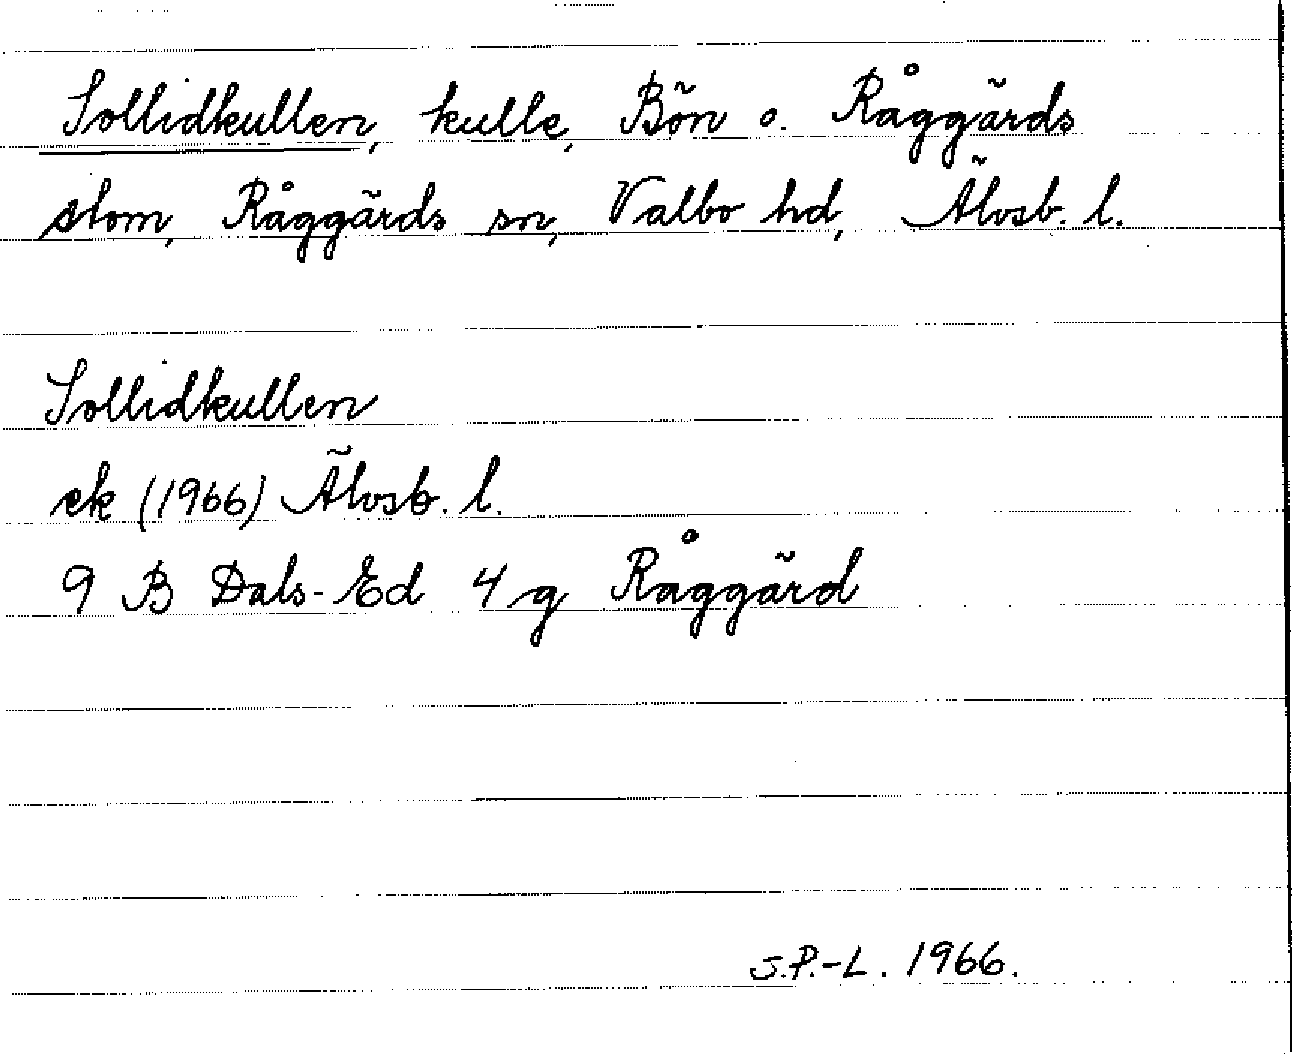 Sollidkullen, kulle, Bön o. Råggärds
stom, Råggärds sn, Valbo hd, Älvsb. l.
Sollidkullen
ek (1966) Älvsb. l.
9 B Dals-Ed 4 g Råggärd
S.P.-L. 1966.